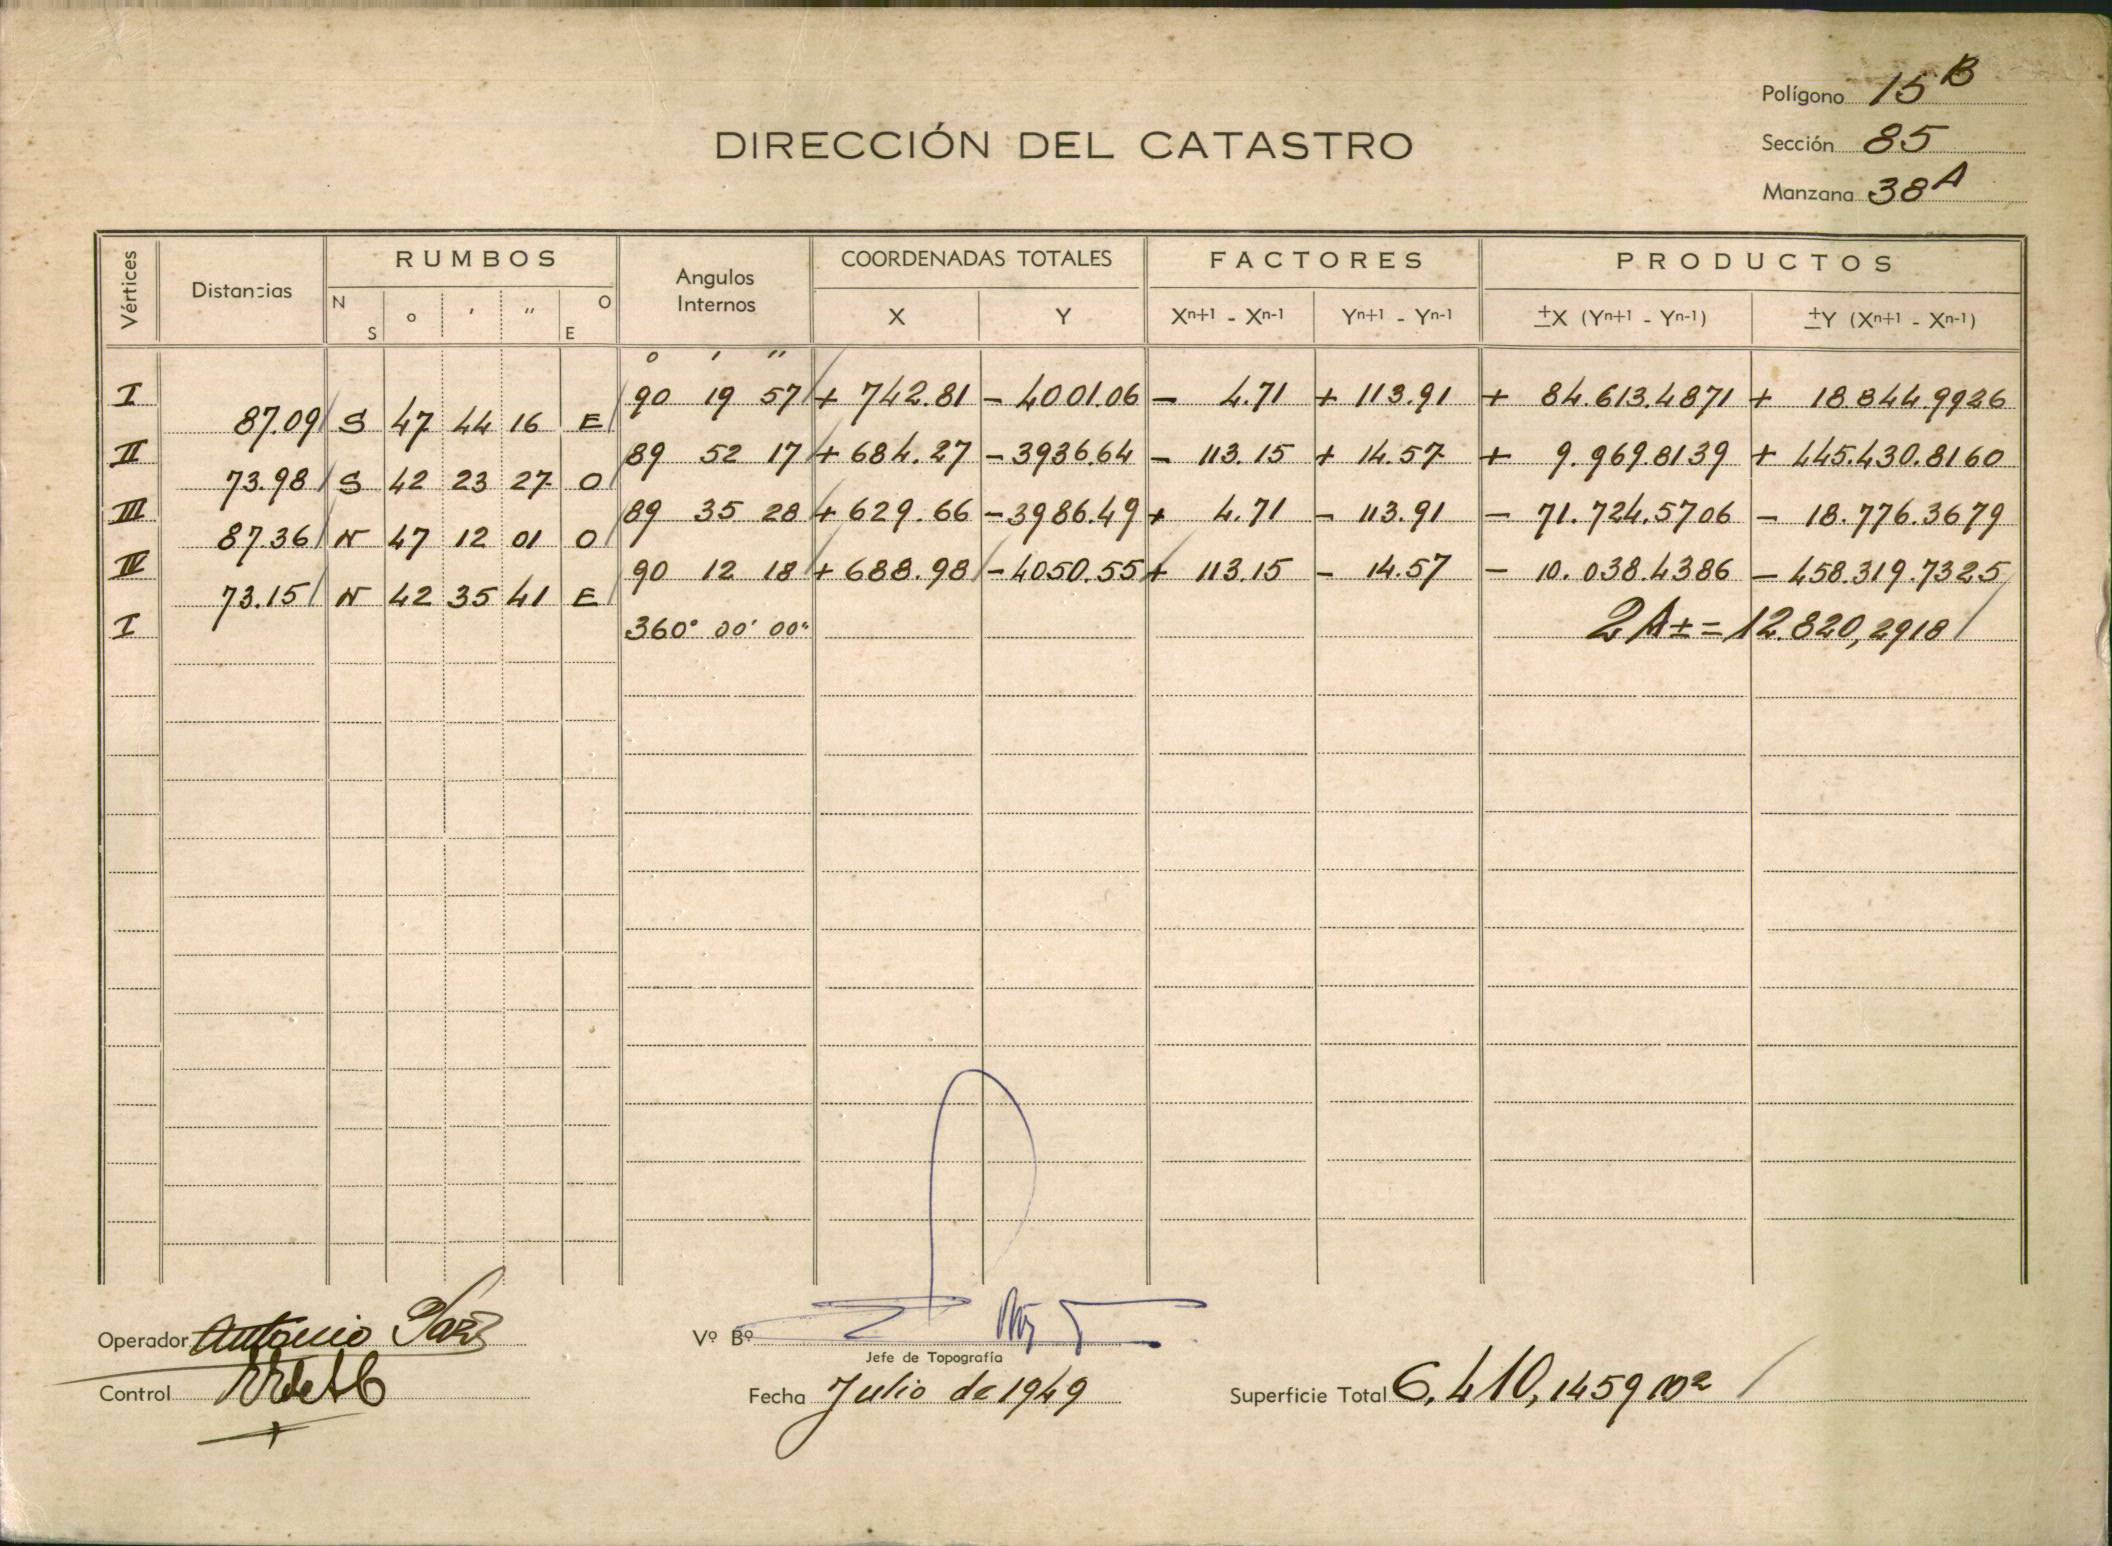 Polígono 15 B
DIRECCIÓN DEL CATASTRO
Sección 85
Manzana 38 A
Vértices Distancias RUMBOS Angulos Internos COORDENADAS TOTALES FACTORES PRODUCTOS
N S ° ' " O E X Y Xn+1 - Xn-1 Yn+1 - Yn-1 ±X (Yn+1 - Yn-1) ±Y (Xn+1 - Xn-1)
° ' "
I 90 19 57 + 742.81 - 4001.06 - 4.71 + 113.91 + 84.613.4871 + 18.844.9926
87.09 S 47 44 16 E
II 89 52 17 + 684.27 - 3936.64 - 113.15 + 14.57 + 9.969.8139 + 445.430.8160
73.98 S 42 23 27 O
III 89 35 28 + 629.66 - 3986.49 + 4.71 - 113.91 - 71.724.5706 - 18.776.3679
87.36 N 47 12 01 O
IV 90 12 18 + 688.98 - 4050.55 + 113.15 - 14.57 - 10.038.4386 - 458.319.7325
73.15 N 42 35 41 E
I 360° 00' 00" 2A± = 12.820,2918
Operador Antonio Vº Bº
Jefe de Topografía
Control Fecha Julio de 1949 Superficie Total 6,410,1459 m2